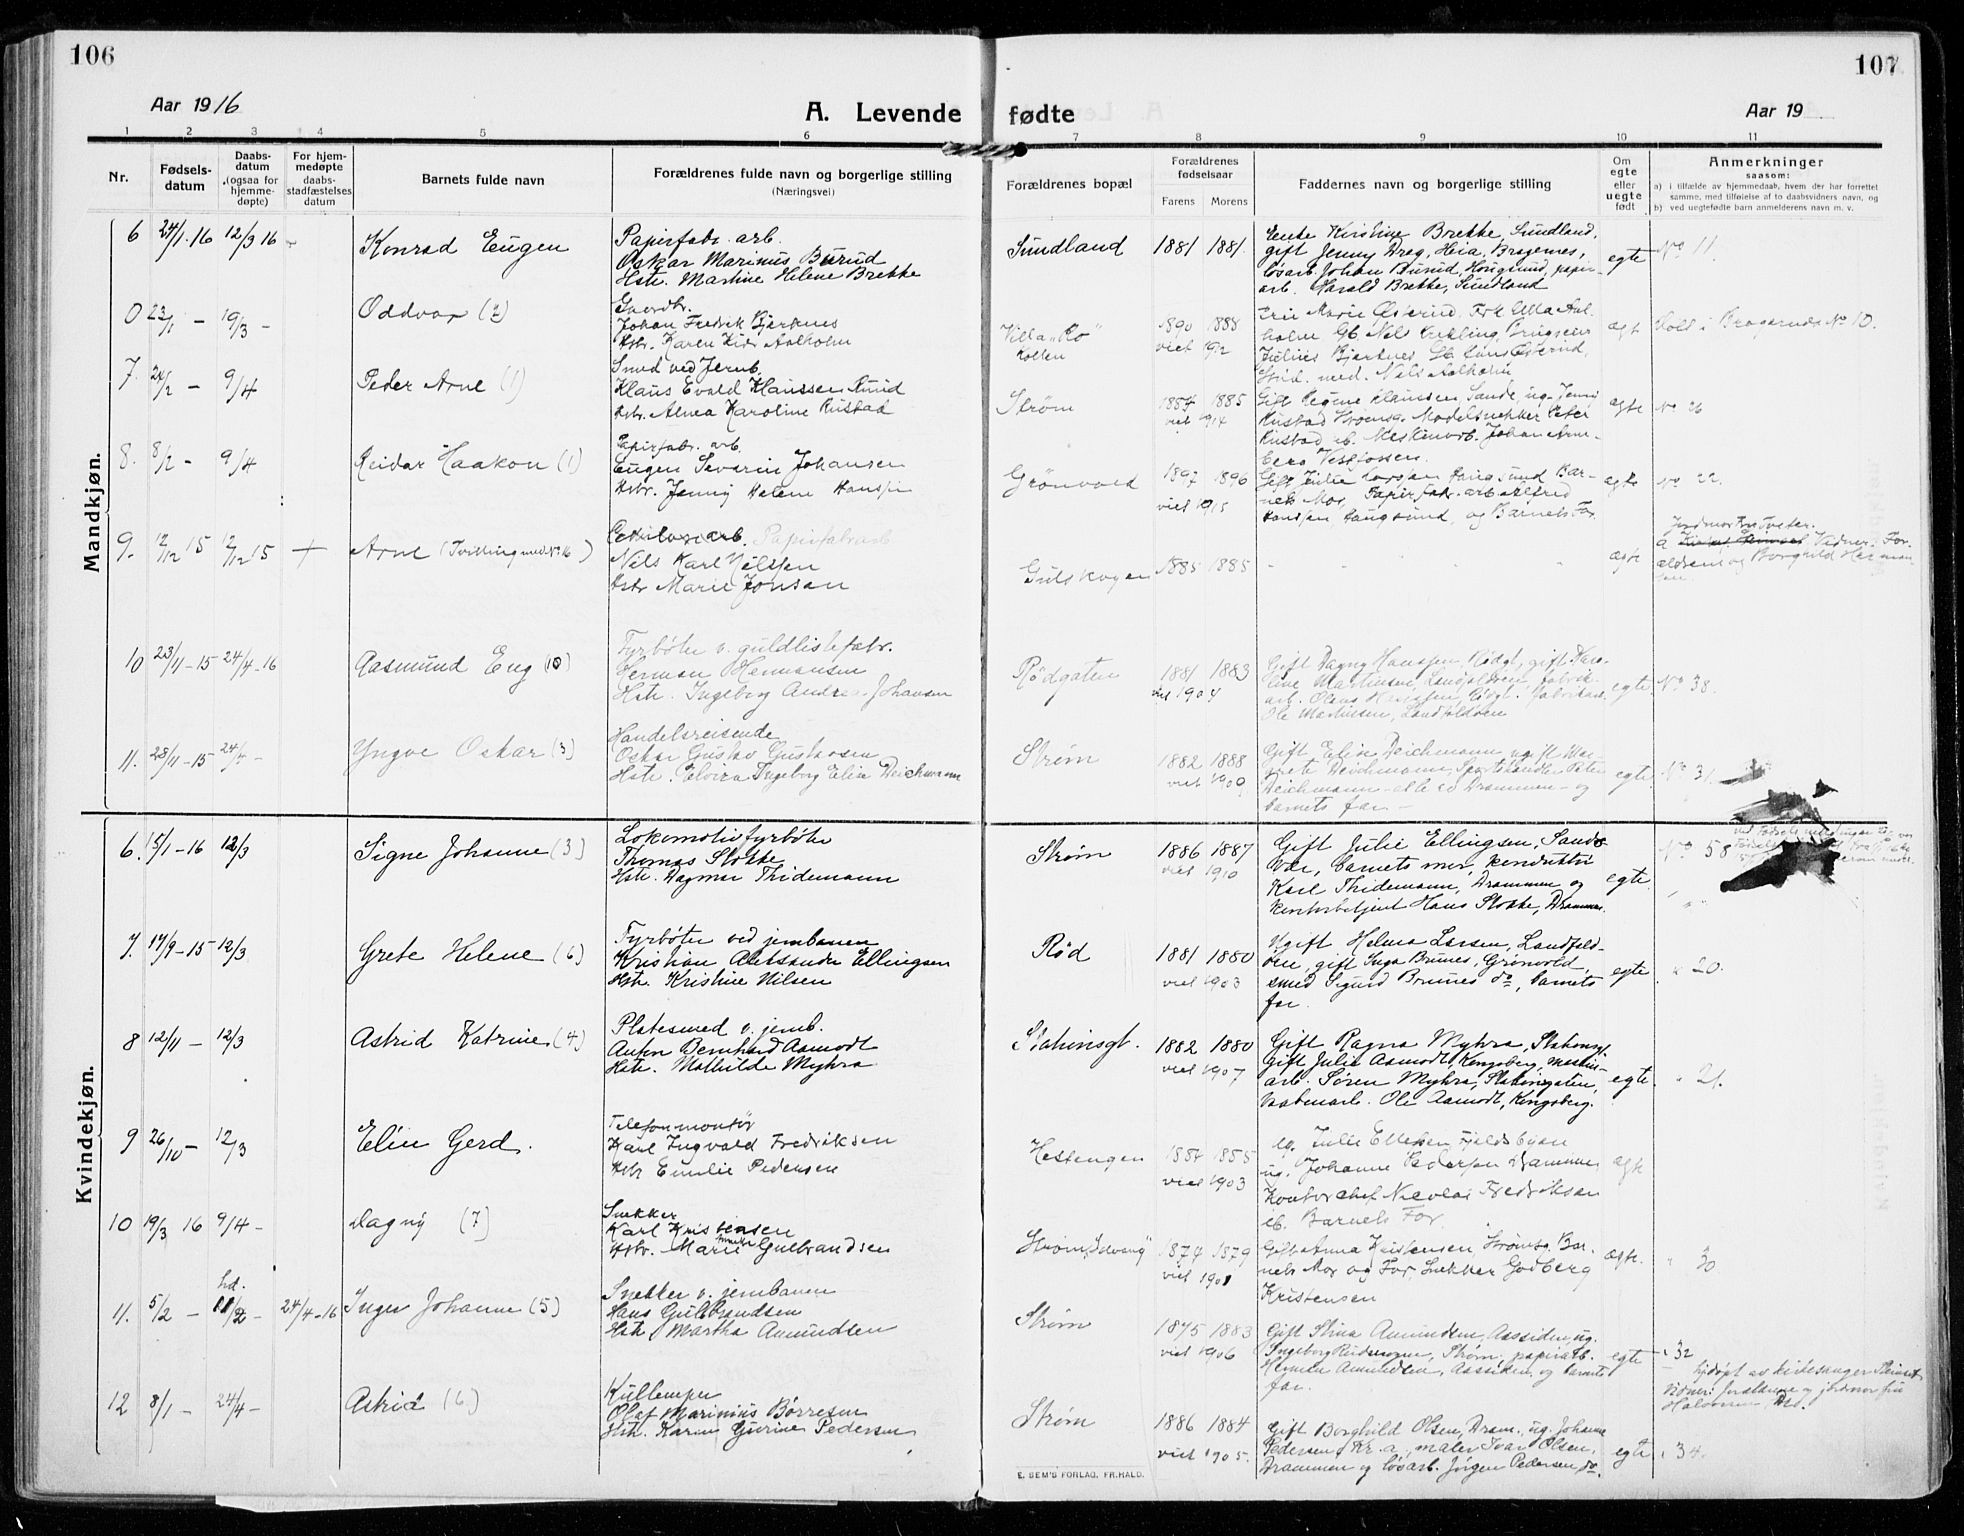 106
107
Aar 1916
A. Levende
fødte
Aar 19
1 2 3 4 5 6 7 8 9 10 11
Nr.
Fødsels-
datum
Daabs-
datum
(ogsaa for
hjemme-
døpte)
For hjem-
medøpte
daabs-
stadfæstelses
datum
Barnets fulde navn
Forældrenes fulde navn og borgerlige stilling
(Næringsvei)
Forældrenes bopæl
Forældrenes
fødselsaar
Farens Morens
Faddernes navn og borgerlige stilling
Om
egte
eller
uegte
født
Anmerkninger
saasom:
a) i tilfælde av hjemmedaab, hvem der har forrettet
samme, med tilføielse af to daabsvidners navn, og
b) ved uegtefødte barn anmelderens navn m. v.
Mandkjøn.
6 24/1 16 12/3 16 Konrad Eugen
Papirfabr. arb.
Oskar Marinius Burud
Hstr. Martine Helene Brekke
Sundland 1881 1881
Enke Kirstine Brekke, Sundland,
gift Jenny Dreg, Heia, Bragernes,
løsarb. Johan Burud, Hougsund, papir-
arb. Harald Brekke, Sundland
egte No 11.
0 23/1 – 19/3 – Oddvar (2)
Gaardbr.
Johan Fredrik Bjerknes
Hstr. Karen Aalholm
Villa "Ro"
Kollen
1890 1888
viet 1912
Julius Bjerknes
Stud. med. Niels Aalholm
ægte
No 10.
7. 24/2 – 9/4 Peder Arne (1)
Smed ved Jernb.
Klaus Evald Klaussen Ruud
Hstr. Alma Karoline Rustad
Strøm 1884 1885
viet 1914
Gift Regine Klaussen, Sande, ug. Jenny
Rustad Strømsg. Modelsnekker Peter
Rustad
ægte No 26
8. 8/2 – 9/4 Reidar Haakon (1)
Papirfabr. arb.
Eugen Severin Johansen
Hstr. Jenny Helene Hanssen
Grønvold 1897 1896
viet 1915
Gift Julie Hougsund Bar-
nets Mor, Papirfabr. arb. Alfred
Hanssen Hougsund, og Barnets Far
ægte No 22.
9. 12/12 15 12/12 15 + Arne (Tvilling med No 16)
Papirfabrarb
Nils Karl Nilssen
Hstr Marie Jonsen
Gulskogen 1885 1885
ægte
Vidner. For-
ældrene og Borghild Herman
sen.
10 23/11–15 24/4–16 Aasmund Eug (10)
Fyrbøter v. guldlistefabr.
Herman Hermansen
Hstr. Ingeborg Andrea Johansen
Rødgaten 1881 1883
viet 1904
Gift Dagny Hanssen, Rødgt, gift Karo-
line Martinsen, Landfaldøen, fabrik-
arb. Rødgt. fabrikarb.
Ole Martinsen, Landfaldøen
egte No 38.
11. 28/11–15 24/4 – Yngve Oskar (3)
Handelsreisende
Oskar Gustav Gustavsen
Hstr. Elvira Ingeborg Elise Deichmann
Strøm 1882 1888
viet 1909
Gift Elise Deichmann, ugift Mar-
grete Deichmann, Sportshandler Peter
Deichmann – alle av Drammen – og
barnets far –
egte No 31.
Kvindekjøn.
6. 15/1–16 12/3 Signe Johanne (3)
Lokomotivfyrbøter
Thomas Stokke
Hstr. Dagmar Thidemann
Strøm 1886 1887
viet 1910
Gift Julie Ellingsen, Sands-
vær, barnets mor, konduktør
Karl Thidemann, Drammen og
kontorbetjent Hans Stokke, Drammen.
egte No 58
7. 17/9–15 12/3 Grete Helene (6)
Fyrbøter ved jernbanen
Kristian Aleksander Ellingsen
Hstr. Kristine Nilsen
Rød 1881 1880
viet 1903
Ugift Helma Larsen, Landfald-
øen, gift Inga Brunes, Grønvold,
smed Sigurd Brunes do, barnets
far.
egte " 20.
8 12/11 – 12/3 Astrid Katrine (4)
Platesmed v. jernb.
Anton Bernhard Aamodt
Hstr. Mathilde Myhra
Stationsgt. 1882 1880
viet 1907
Gift Ragna Myhra, Stationsgt
Gift Julie Aamodt, Kongsberg, maskin-
arb. Søren Myhra, Stationsgaten,
vaabenarb. Ole Aamodt, Kongsberg.
egte " 21.
9 26/10 – 12/3 Elin Gerd.
Telefonmontør
Karl Ingvald Fredriksen
Hstr Emilie Pedersen
Hestengen 1884 1885
viet 1903
ug. Julie Ellefsen, Fjeldsbyen
ug. Johanne Pedersen Drammen
Kontorchef Nicolai Fredriksen
Barnets Far.
ægte
10 19/3 16 9/4 – Dagny (7)
Snekker
Karl Kristensen
Hstr. Marie Gulbrandsen
Strøm, "Solvang" 1874 1879
viet 1901
Gift Anna Kristensen, Strømsg. Bar-
nets Mor og Far, Snekker Godberg
Kristensen
ægte. " 30
11. 5/2 – hd. 11/2 – 24/4–16 Inger Johanne (5)
Snekker v. jernbanen
Hans Gulbrandsen
Hstr Martha Amundsen
Strøm 1875 1883
viet 1906
Gift Stina Amundsen, Aassiden, ug.
Ingeborg Strøm, papirarb.
Amundsen, Aassiden, og barnets
far.
egte " 32
hjdøpt av kirkesanger
Vidner: forældrene og jordmor fru
Halvorsen, Død.
12 8/1 – 24/4 – Astrid (6)
Kullemper
Olaf Marinius Børresen
Hstr. Karen Gurine Pedersen
Strøm 1886 1884
viet 1905.
Gift Borghild Olsen, Dram., ug. Johanne
Pedersen, Kr.a., maler Ivar Olsen,
Drammen og løsarb. Jørgen Pedersen, do.
egte " 34.
E. SEM'S FORLAG, FR.HALD.